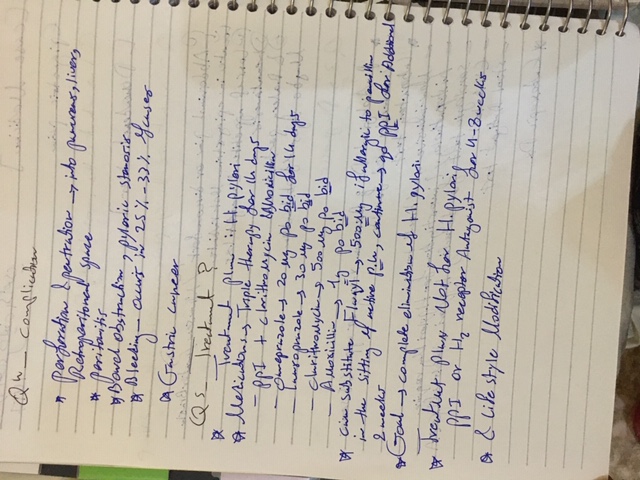 Q4 _ complication
* Perforation & penetration → into pancreas, liver,
Retroperitoneal space
* Peritonitis
* Bowel obstruction, pyloric stenosis
* Bleeding - occurs in 25% - 33% of cases
* Gastric cancer
Q5 _ Treatment ?
* Treatment plan : H. pylori
* Medications → Triple therapy for 14 days
- PPI + clarithromycin Amoxicillin
- Omeprazole → 20 mg po bid for 14 days
- Lansoprazole → 30 mg po bid
- Clarithromycin → 500 mg po bid
- Amoxicillin → 1 g po bid
* can substitute Flagyl → 500 mg if allergic to penicillin
in the sitting of active, continue → PPI for Additional
2 weeks
* Goal → complete elimination of H. pylori
* Treatment plan Not for H. pylori
PPI or H2 receptor Antagonist for 4-8 weeks
* & Life style Modification